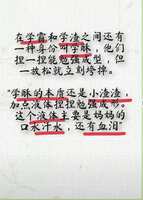 在学霸和学渣之间还有
一种身份叫学脉，他们
捏一捏能勉强成型，但
一放松就立刻垮掉。
“学脉的本质还是小渣渣，
加点液体捏捏勉强成形。
这个液体主要是妈妈的
口水汗水，还有血泪”